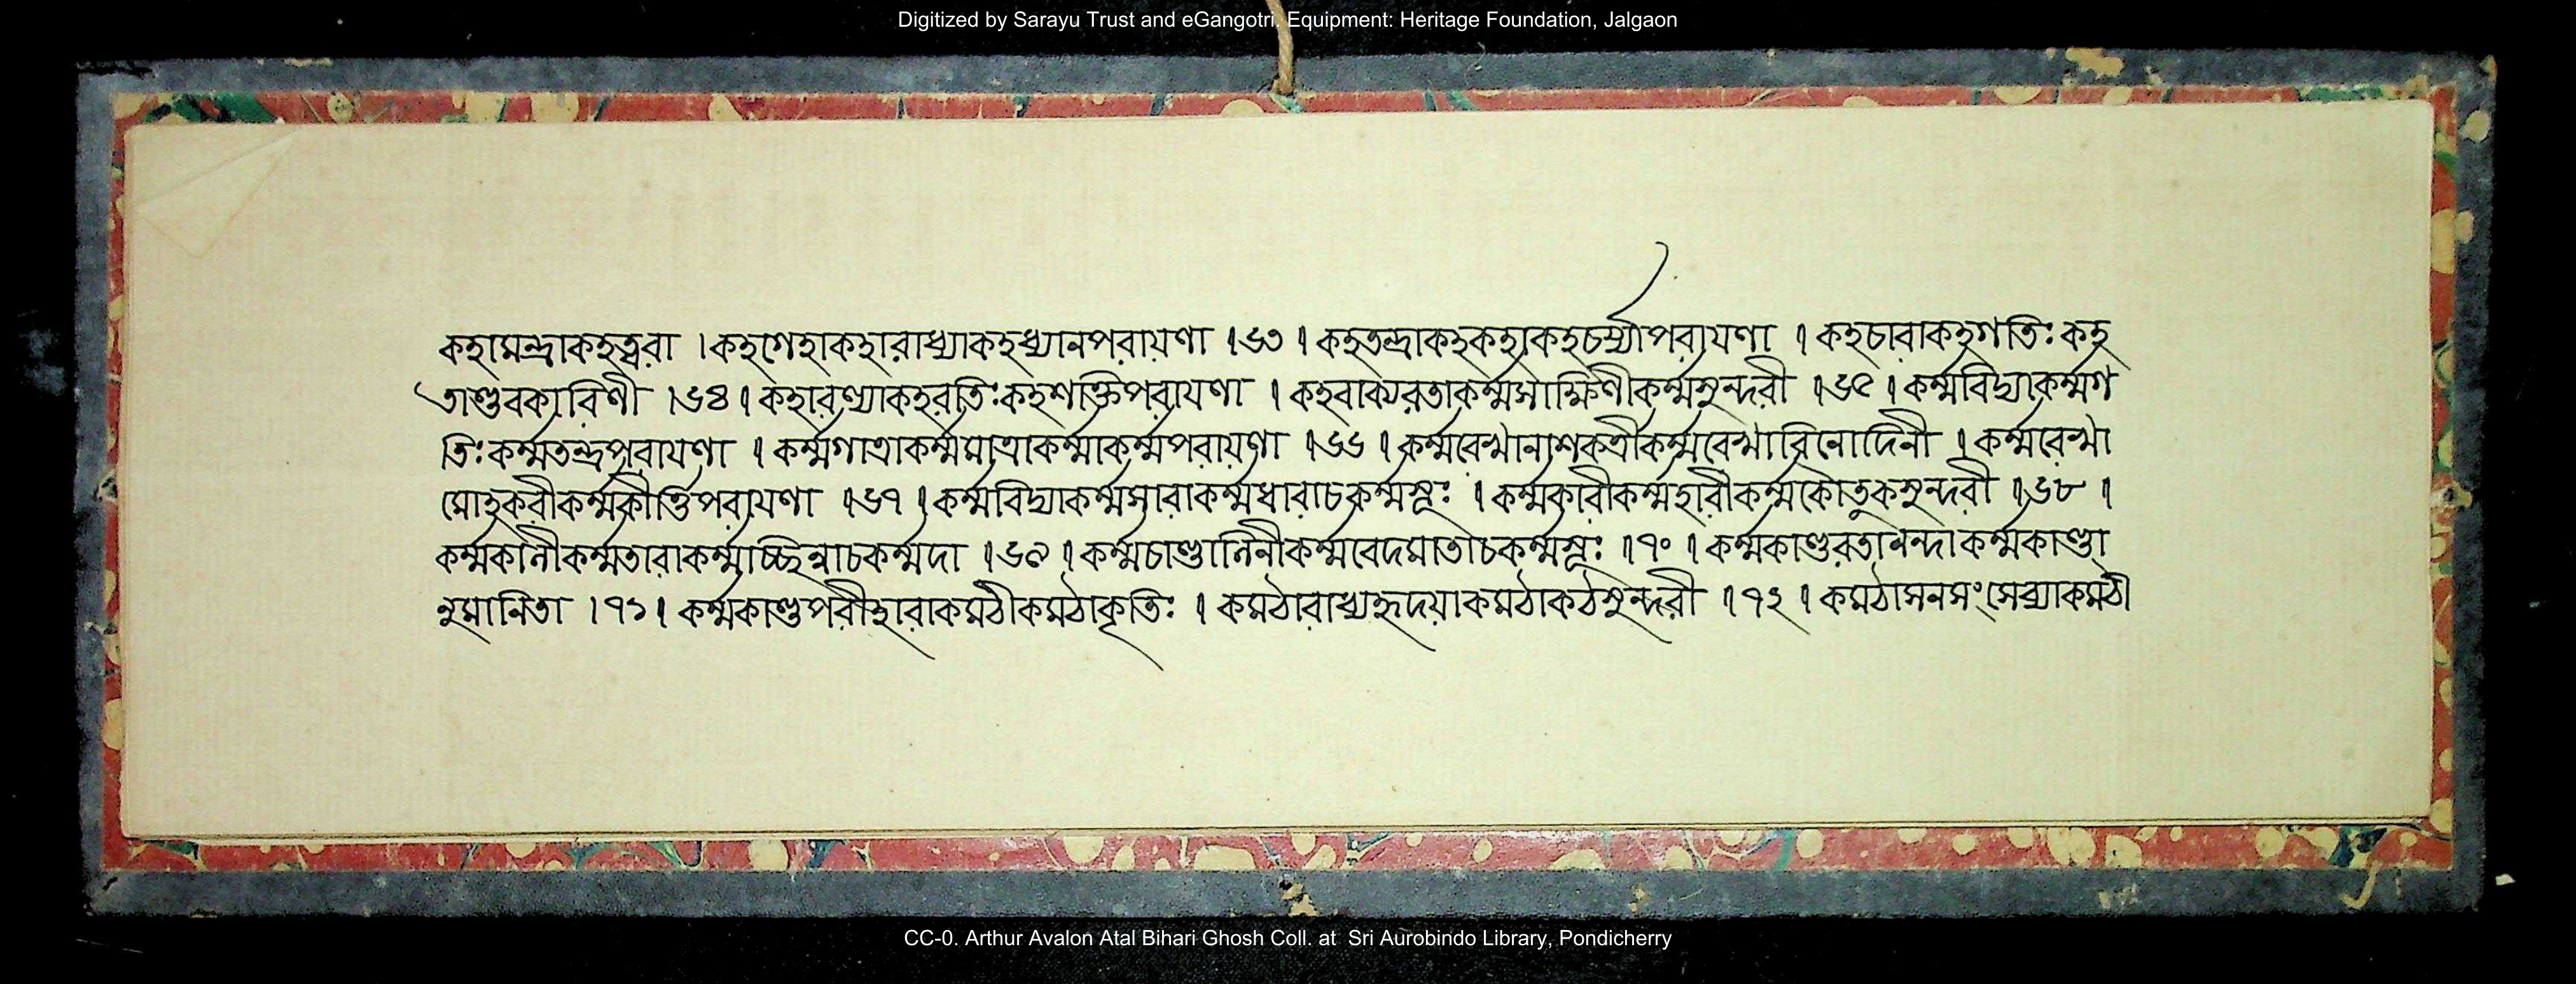 Digitized by Sarayu Trust and eGangotri. Equipment: Heritage Foundation, Jalgaon
কহামন্দ্রাকহত্বরা । কহগেহাকহারাধ্যাকহধ্যানপরায়ণা । ৬৩ । কহতন্দ্রাকহকহাকহচর্য্যাপরায়ণা । কহচারাকহগতিঃ কহ
তাণ্ডবকারিণী । ৬৪ । কহারণ্যাকহরতিঃ কহশক্তিপরায়ণা । কহবাক্যরতাকর্ম্মসাক্ষিণীকর্ম্মসুন্দরী । ৬৫ । কর্ম্মবিদ্যাকর্ম্মগ
তিঃ কর্ম্মতন্দ্রপরায়ণা । কর্ম্মগাত্রাকর্ম্মমাত্রাকর্ম্মাকর্ম্মপরায়ণা । ৬৬ । কর্ম্মরেখানাশকর্ত্রীকর্ম্মরেখাবিনোদিনী । কর্ম্মরেখা
মোহকরীকর্ম্মকীর্ত্তিপরায়ণা । ৬৭ । কর্ম্মবিদ্যাকর্ম্মসারাকর্ম্মধারাচকর্ম্মভূঃ । কর্ম্মকারীকর্ম্মহারীকর্ম্মকৌতুকসুন্দরী । ৬৮ ।
কর্ম্মকালীকর্ম্মতারাকর্ম্মাচ্ছিন্নাচকর্ম্মদা । ৬৯ । কর্ম্মচাণ্ডালিনীকর্ম্মবেদমাতাচকর্ম্মভূঃ । ৭০ । কর্ম্মকাণ্ডরতানন্দা কর্ম্মকাণ্ডা
নুমানিতা । ৭১ । কর্ম্মকাণ্ডপরীহারাকমঠীকমঠাকৃতিঃ । কমঠারাধ্যহৃদয়াকমঠাকঠসুন্দরী । ৭২ । কমঠাসনসংসেব্যাকমঠী
CC-0. Arthur Avalon Atal Bihari Ghosh Coll. at Sri Aurobindo Library, Pondicherry